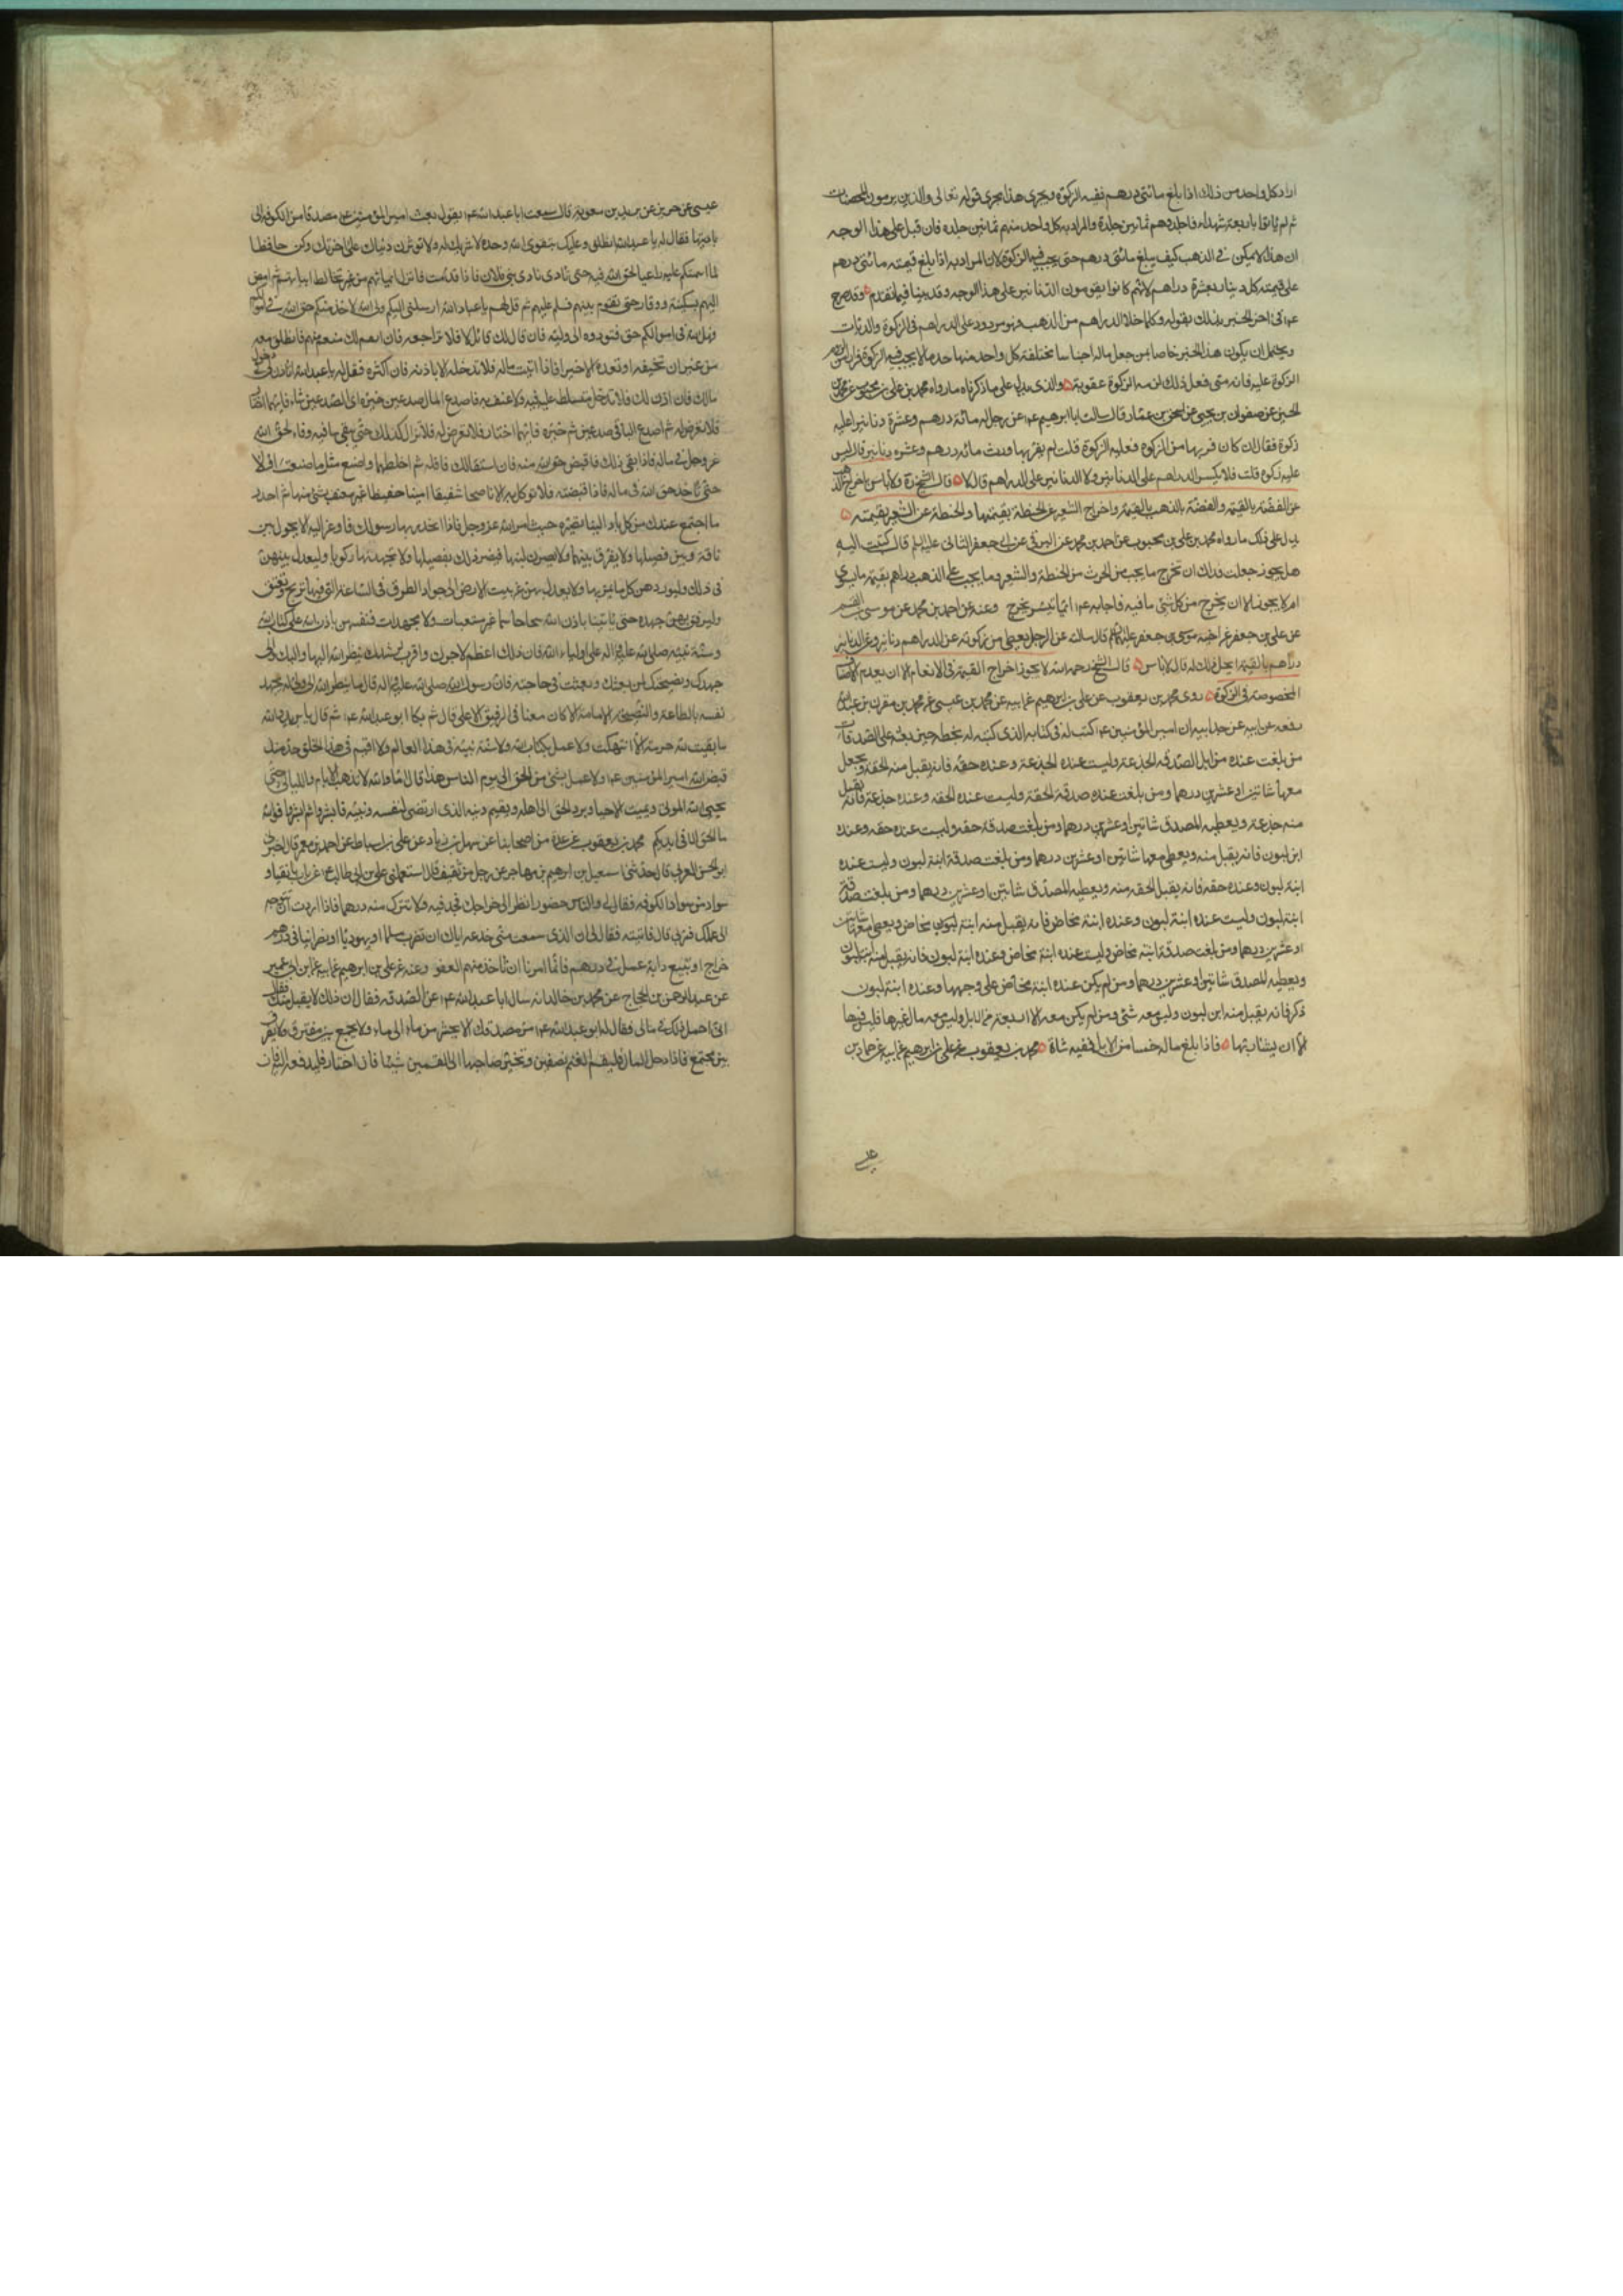 اراد كل واحد من ذلك اذا بلغ مائتى درهم ففيه الزكوة ويجرى هذا مجرى قوله تعالى والذين يرمون المحصنات
ثم لم ياتوا باربعة شهداء فاجلدوهم ثمانين جلدة والمراد به كل واحد منهم ثمانين جلده فان قيل على هذا الوجه
ان هذا لا يمكن فى الذهب كيف يبلغ مائتى درهم حتى يجب فيه الزكوة لان المراد به اذا بلغ قيمته مائتى درهم
على قيمته كل دينار بعشرة دراهم لانهم كانوا يقومون الدنانير على هذا الوجه وقد بينا فيما تقدم وقد صرح
عم فى اخر الخبر بذلك بقوله وكلما خلا الدراهم من الذهب فهو مردود على الدراهم فى الزكوة والديات
ويحتمل ان يكون هذا الخبر خاصا بمن جعل ماله اجناسا مختلفة كل واحد منها حد ما لا يجب فيه الزكوة فرارا من لزوم
الزكوة عليه فانه متى فعل ذلك لزمه الزكوة عقوبة والذى يدل على ما ذكرناه ما رواه محمد بن على بن محبوب عن محمد بن
الحسين عن صفوان بن يحيى عن اسحق بن عمار قال سالت ابا ابرهيم عم عن رجل له مائة درهم وعشرة دنانير اعليه
زكوة فقال ان كان فر بها من الزكوة فعليه الزكوة قلت لم يفر بها ورث مائة درهم وعشره دنانير قال ليس
عليه زكوة قلت فلا يكسر الدراهم على الدنانير ولا الدنانير على الدراهم قال لا قال الشيخ ره ولا باس باخراج الذهب
عن الفضة بالقيمة والفضة بالذهب بالقيمة واخراج الشعير عن الحنطة بقيمتها والحنطة عن الشعير بقيمته
يدل على ذلك ما رواه محمد بن على بن محبوب عن احمد بن محمد عن البرقى عن ابى جعفر الثانى عليه السلم قال كتبت اليه
هل يجوز جعلت فداك ان تخرج ما يجب من الحرث من الحنطة والشعير وما يجب على الذهب دراهم بقيمة ما يسوى
ام لا يجوز الا ان يخرج من كل شئ ما فيه فاجابه عم ايما تيسر يخرج وعنه عن احمد بن محمد عن موسى بن القسم
عن على بن جعفر عن اخيه موسى بن جعفر عليهما السلم قال سالت عن الرجل يعطى من زكوته عن الدراهم دنانير وعن الدنانير
دراهم بالقيمة ايحل ذلك له قال لا باس قال الشيخ رحمه الله لا يجوز اخراج القيمة فى الانعام الا ان يعدم الاسنان
المخصوصة فى الزكوة روى محمد بن يعقوب عن على بن ابرهيم عن ابيه عن محمد بن عيسى عن محمد بن مقرن بن عبد الله
بن زمعه عن ابيه عن جد ابيه ان امير المؤمنين عم كتب له فى كتابه الذى كتبه له بخطه حين بعثه على الصدقات
من بلغت عنده من ابل الصدقة الجذعة وليست عنده الجذعة وعنده حقه فانه يقبل منه الحقة ويجعل
معها شاتين او عشرين درهما ومن بلغت عنده صدقة الحقة وليست عنده الحقه وعنده جذعة فانه يقبل
منه جذعة ويعطيه المصدق شاتين او عشرين درهما ومن بلغت صدقة حقه وليست عنده حقه وعنده
ابن لبون فانه يقبل منه ويعطى معها شاتين او عشرين درهما ومن بلغت صدقة ابنة لبون وليست عنده
ابنة لبون وعنده حقه فانه يقبل الحقه منه ويعطيه المصدق شاتين او عشرين درهما ومن بلغت صدقته
ابنة لبون وليست عنده ابنة لبون وعنده ابنة مخاض فانه يقبل منه ابنة لبون مخاض ويعطى معها شاتين
او عشرين درهما ومن بلغت صدقة ابنة مخاض وليست عنده ابنة مخاض وعنده ابنة لبون فانه يقبل منه ابنة لبون
ويعطيه المصدق شاتين او عشرين درهما ومن لم يكن عنده ابنة مخاض على وجهها وعنده ابنة لبون
ذكر فانه يقبل منه ابن لبون وليس معه شئ ومن لم يكن معه الا اربعة من الابل وليس معه مال غيرها فليس فيها
الا ان يشاء ربها فاذا بلغ ماله خمسا من الابل ففيه شاة محمد بن يعقوب عن على بن ابرهيم عن ابيه عن حماد بن
عيسى عن حريز عن بريد بن معوية قال سمعت ابا عبد الله عم يقول بعث امير المؤمنين عم مصدقا من الكوفة الى
باديتها فقال له يا عبد الله انطلق وعليك بتقوى الله وحده لا شريك له ولا تؤثرن دنياك على اخرتك وكن حافظا
لما ائتمنتك عليه راعيا لحق الله فيه حتى تاتى نادى بنى فلان فاذا قدمت فانزل بمائهم من غير تخالط ابياتهم ثم امض
اليهم بسكينة ووقار حتى تقوم بينهم فسلم عليهم ثم قل لهم يا عباد الله ارسلنى اليكم ولى الله لاخذ منكم حق الله فى اموالكم
فهل لله فى اموالكم حق فتؤدوه الى وليه فان قال لك قائل لا فلا تراجعه فان انعم لك منعم منهم فانطلق معه
من غير ان تخيفه او تعده الا خيرا فاذا اتيت ماله فلا تدخله الا باذنه فان اكثره فقل له يا عبد الله اتاذن لى فى دخول
مالك فان اذن لك فلا تدخل متسلط عليه فيه ولا عنف به فاصدع المال صدعين ثم خيره اى الصدعين شاء فايهما اختار
فلا تعرض له ثم اصدع الباقى صدعين ثم خيره فايهما اختار فلا تعرض له فلا تزال كذلك حتى يبقى ما فيه وفاء لحق الله
عز وجل فى ماله فاذا بقى ذلك فاقبض حق الله منه فان استقالك فاقله ثم اخلطهما واصنع مثل ما صنعت اولا
حتى تاخذ حق الله فى ماله فاذا قبضته فلا توكل به الا ناصحا شفيقا امينا حفيظا غير معنف بشئ منها ثم احدر
ما اجتمع عندك من كل ناد الينا نصيره حيث امر الله عز وجل فاذا انحدر بها رسولك فاوعز اليه لا يحول بين
ناقة وبين فصيلها ولا يفرق بينهما ولا يصرن لبنها فيضر ذلك بفصيلها ولا يجهدنها ركوبا وليعدل بينهن
فى ذلك وليوردهن كل ماء يمر بها ولا يعدل بهن عن نبت الارض الى جواد الطرق فى الساعة التى فيها تريح وتغبق
وليرفق بهن جهده حتى ياتينا باذن الله سحاحا سمانا غير متعبات ولا مجهدات فنقسمهن باذن الله على كتاب الله
وسنة نبيه صلى الله عليه واله على اولياء الله فان ذلك اعظم لاجرك واقرب لرشدك ينظر الله اليها واليك والى
جهدك ونصيحتك لمن بعثك وبعثت فى حاجته فان رسول الله صلى الله عليه واله قال ما ينظر الله الى ولى له يجهد
نفسه بالطاعة والنصيحة لامامه الا كان معنا فى الرفيق الاعلى قال ثم بكا ابو عبد الله عم ثم قال يا بريد والله
ما بقيت لله حرمة الا انتهكت ولا عمل بكتاب الله ولا سنة نبيه فى هذا العالم ولا اقيم فى هذا الخلق حد منذ
قبض الله امير المؤمنين عم ولا عمل بشئ من الحق الى يوم الناس هذا قال اما والله لا تذهب الايام والليالى حتى
يحيى الله الموتى ويميت الاحياء ويرد الحق الى اهله ويقيم دينه الذى ارتضى لنفسه ونبيه فابشروا ثم ابشروا فوالله
ما الحق الا فى ايديكم محمد بن يعقوب عن عدة من اصحابنا عن سهل بن زياد عن على بن اسباط عن احمد بن معمر قال اخبرنى
ابو الحسن العرنى قال حدثنى اسمعيل بن ابرهيم بن مهاجر عن رجل من ثقيف قال استعملنى على بن ابى طالب عم على بانقيا و
سواد من سواد الكوفه فقال لى والناس حضور انظر الى خراجك فجد فيه ولا تترك منه درهما فاذا اردت ان تتوجه
الى عملك فمر بى قال فاتيته فقال لى ان الذى سمعت منى خدعه اياك ان تضرب مسلما او يهوديا او نصرانيا فى درهم
خراج او تبيع دابة عمل فى درهم فانما امرنا ان ناخذ منهم العفو وعنه عن على بن ابرهيم عن ابيه عن ابن ابى عمير
عن عبد الرحمن بن الحجاج عن محمد بن خالد انه سال ابا عبد الله عم عن الصدقه فقال ان ذلك لا يقبل منك فقال
انى احمل ذلك فى مالى فقال له ابو عبد الله عم مر مصدقك الا يحشر من ماء الى ماء ولا يجمع بين متفرق ولا يفرق
بين مجتمع فاذا دخل المال فليقسم الغنم نصفين ويخير صاحبها اى القسمين شيئا فان اختار فليدفعه اليه فان